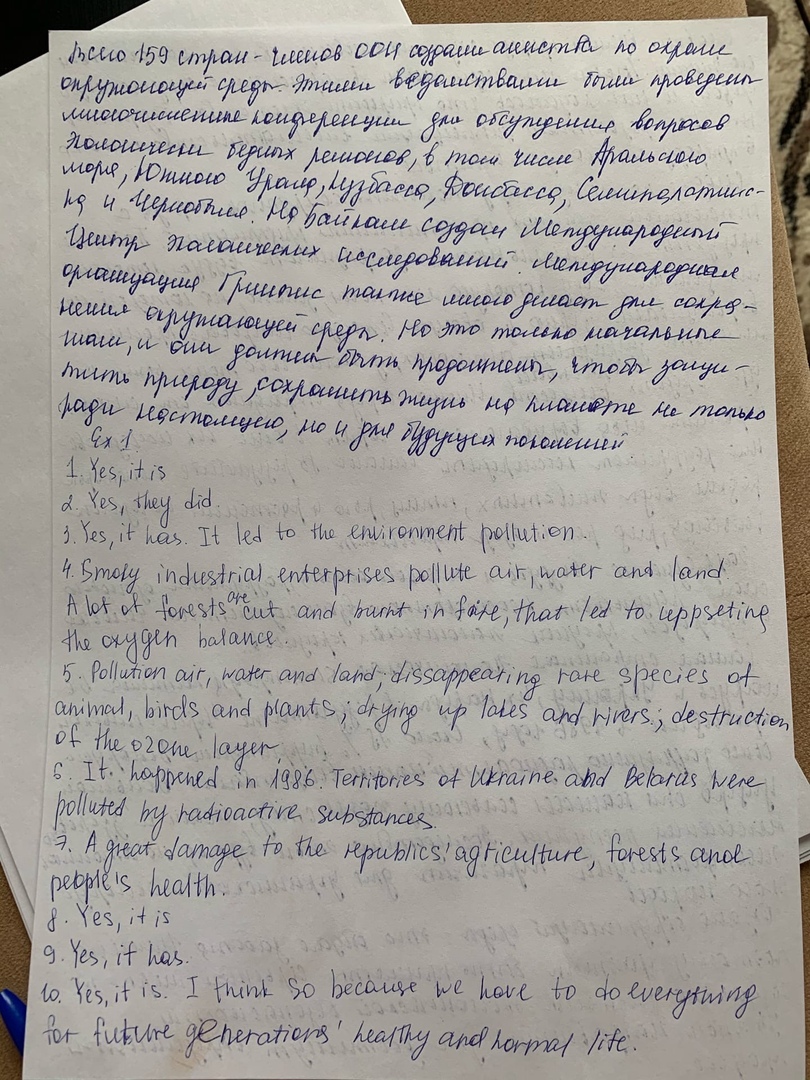 Всего 159 стран - членов ООН создали агенства по охране
окружающей среды. Этими ведомствами были проведены
многочисленные конференции для обсуждения вопросов
экологически бедных регионов, в том числе Аральского
моря, Южного Урала, Кузбасса, Донбасса, Семипалатинс-
ка и Чернобыля. На Байкале создан Международный
Центр экологических исследований. Международная
организация Гринпис также много делает для сохра-
нения окружающей среды. Но это только начальные
шаги, и они должны быть продолжены, чтобы защи-
тить природу, сохранить жизнь на планете не только
ради настоящего, но и для будущих поколений.
Ex 1
1. Yes, it is
2. Yes, they did
3. Yes, it has. It led to the environment pollution.
4. Smoky industrial enterprises pollute air, water and land
A lot of forests are cut and burnt in fire, that led to uppseting
the oxygen balance.
5. Pollution air, water and land; dissappearing rare species of
animal, birds and plants; drying up lakes and rivers; destruction
of the ozone layer.
6. It happened in 1986. Territories of Ukraine and Belarus were
polluted by radioactive substances.
7. A great damage to the republics' agriculture, forests and
people's health.
8. Yes, it is
9. Yes, it has.
10. Yes, it is. I think so because we have to do everything
for future generations' healthy and normal life.